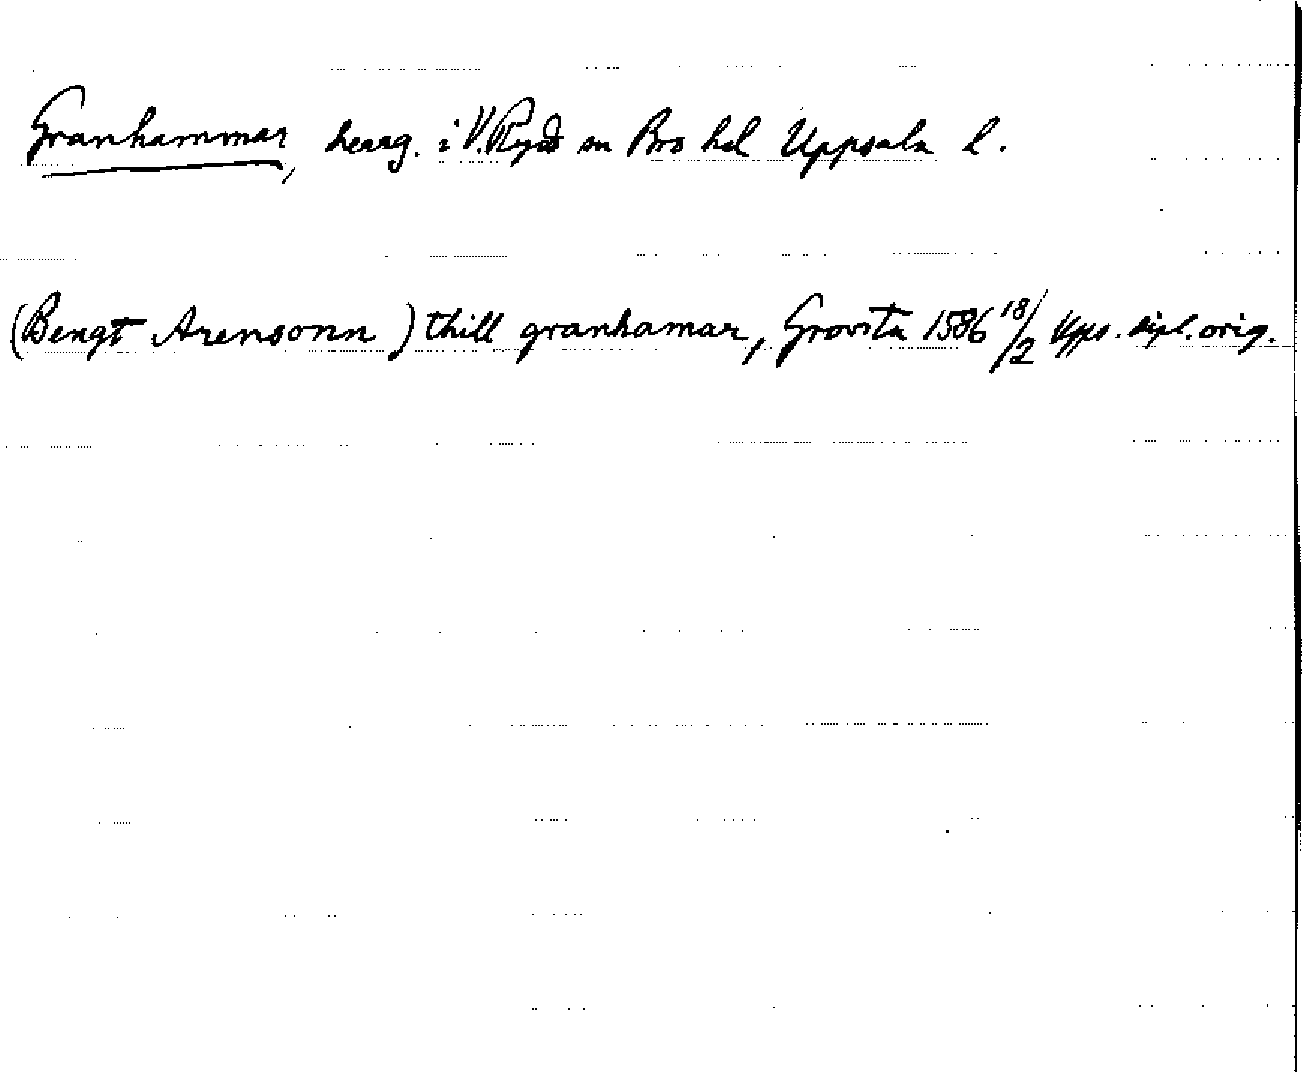 Granhammar, herrg. i V. Ryd sn Bro hd Uppsala l.
(Bengt Arensonn) thill granhamar, Grovsta 1586 18/2 Upps. dipl. orig.